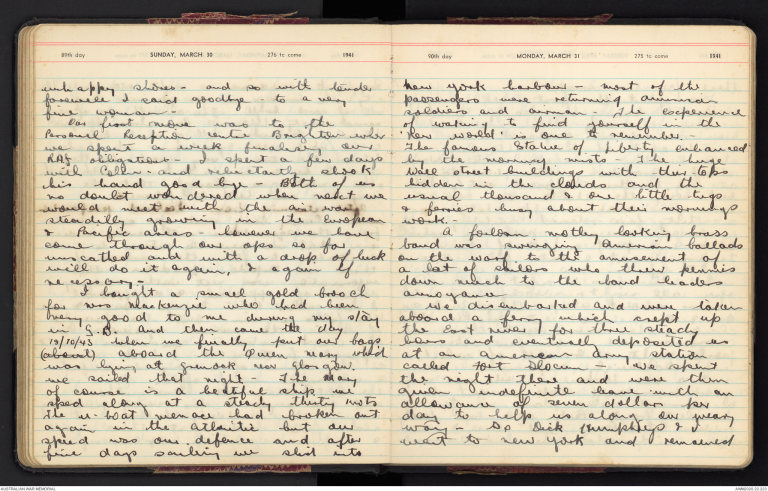 89th day SUNDAY, MARCH 30 276 to come 1941
unhappy shores - and so with tender
farewell I said goodbye - to a very
fine woman -
Our first move was to the
Personnel Reception Centre Brighton where
we spent a week finalising our
RAF obligations - I spent a few days
with Colin and reluctantly shook
his hand good bye - Both of us
no doubt wondered when next we
would meet with the air war
steadilly growing in the European
& Pacific areas - however we have
come through our ops so far
unscathed and with a drop of luck
will do it again, & again if
necessary -
I bought a small gold brooch
for Mrs Mackenzie who had been
very good to me during my stay
in G.B. and then came the day
19/10/43 when we finally put our bags
(aboard) aboard the Queen Mary which
was lying at Grenock near Glasgow.
we sailed that night. The Mary
of course is a beatiful ship we
sped along at steady thirty knots
the u-boat menace had broken out
again in the Atlantic but our
speed was our defence and after
five days sailing we slid into
90th day MONDAY, MARCH 31 275 to come 1941
New York harbour - most of the
passengers were returning American
soldiers and airman. The experience
of waking to find yourself in the
'new world' is one to remember. -
The famous Statue of Liberty enhanced
by the morning mists - The huge
Wall street buildings with their tops
hidden in the clouds and the
usual thousand & one little tugs
& ferries busy about their mornings
work.
A forlorn motley looking brass
band was swinging American ballads
on the warf to the amusement of
a lot of sailors who threw pennies
down much to the band leaders
annoyance.
We disembarked and were taken
aboard a ferry which crept up
the East river for three steady
hours and eventually deposited us
at an American Army station
called Fort Slocum - we spent
the night there and were then
given indefinite leave with an
allowance of seven dollars per
day to help us along our weary
way - So Dick Humphreys & I
went to New York and remained
AUSTRALIAN WAR MEMORIAL